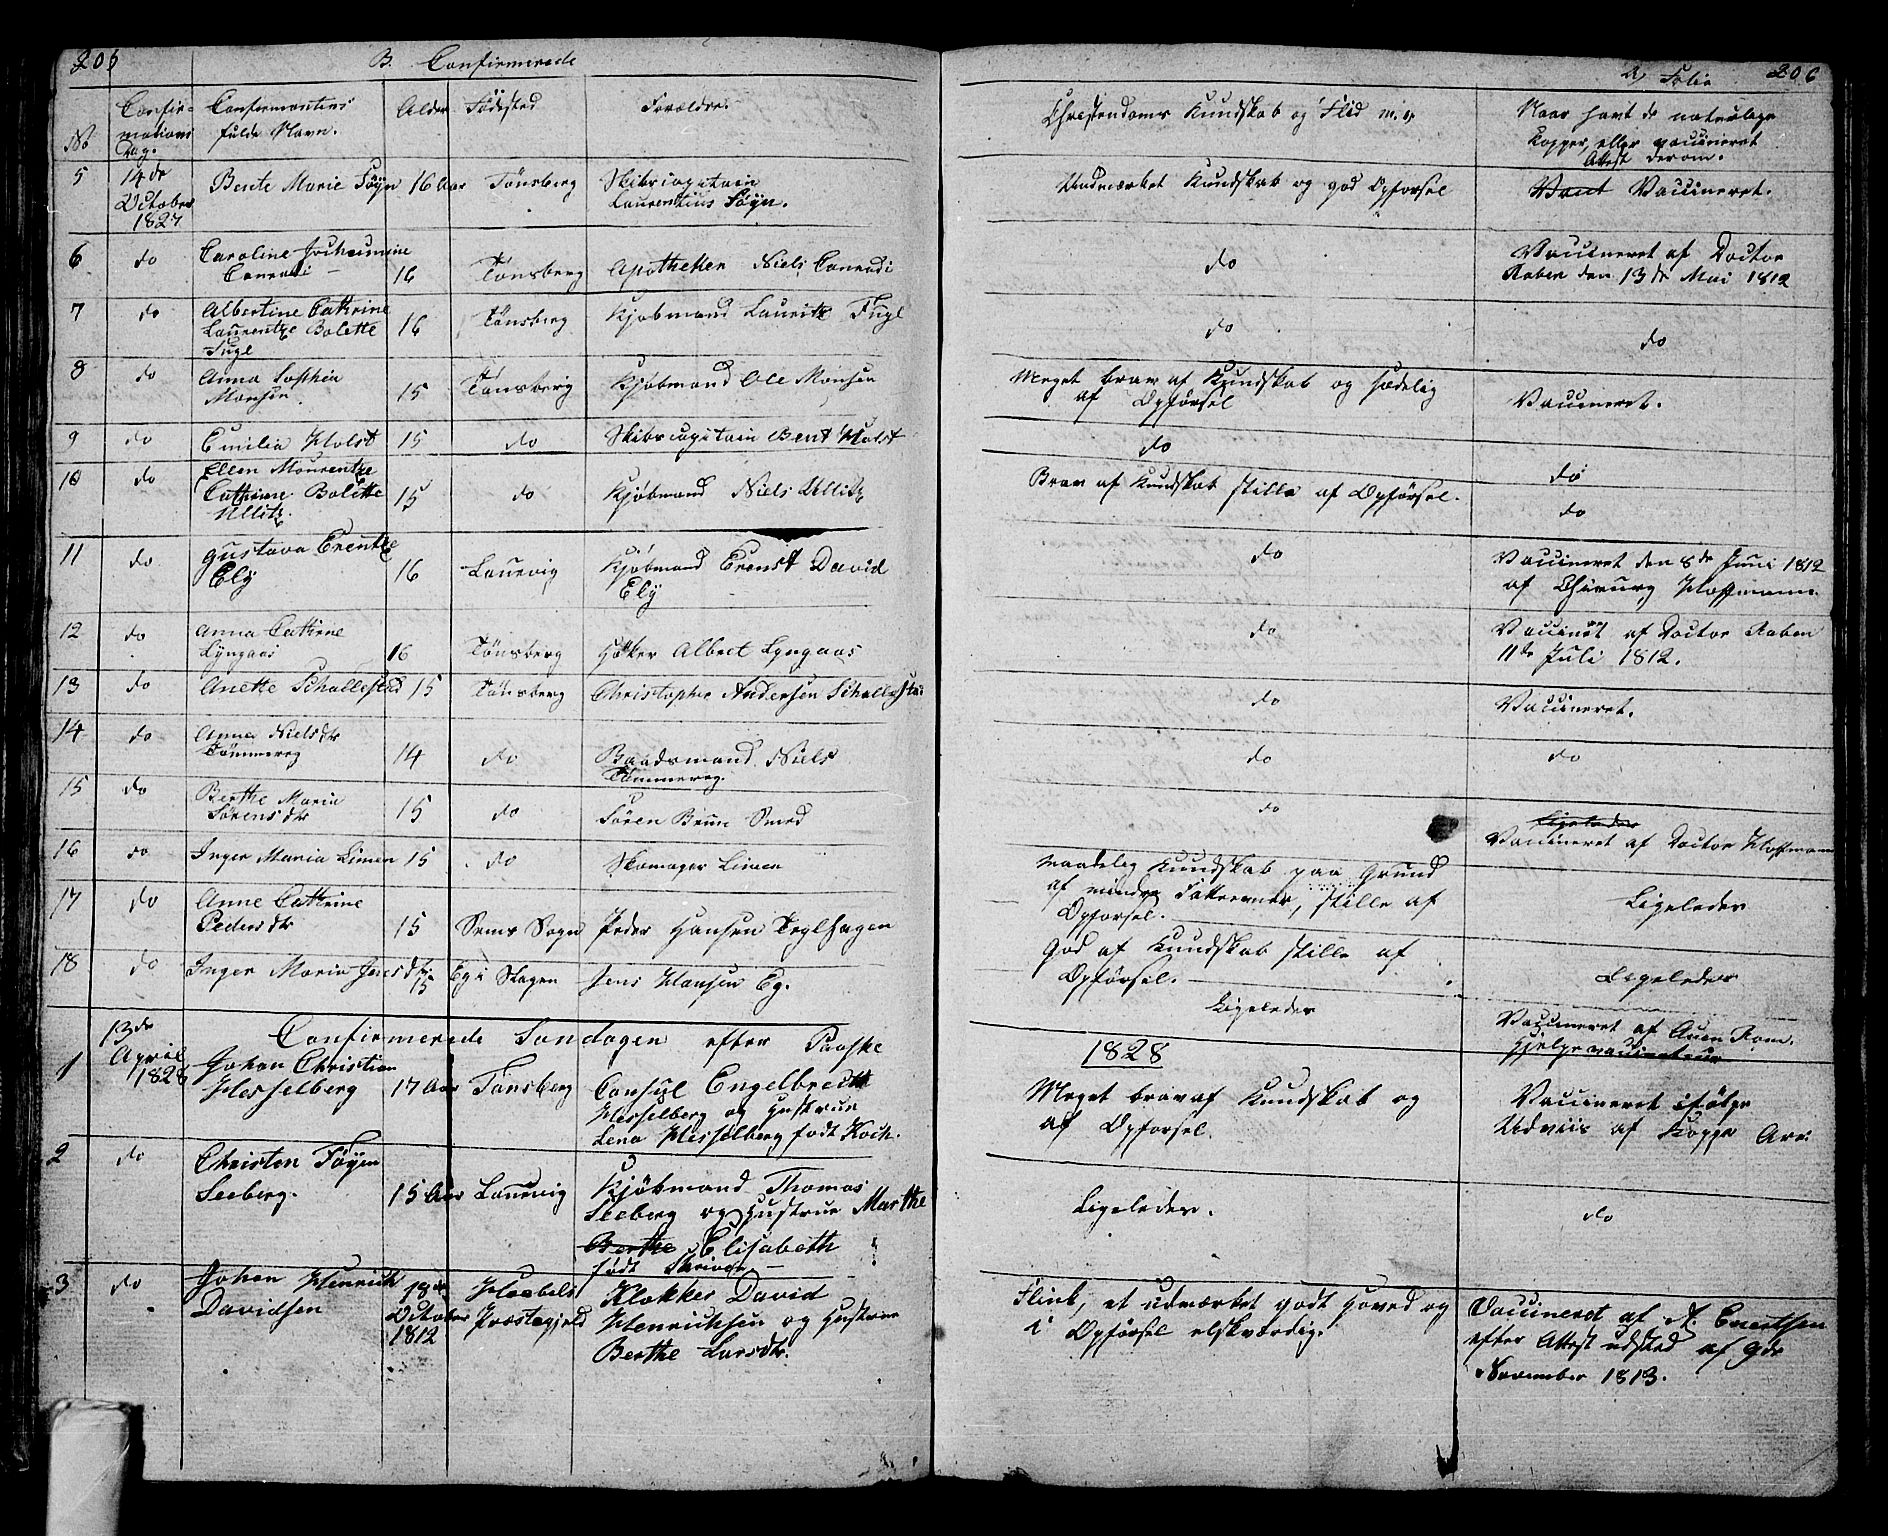 205 B. Confirmerede
No Confir-mations Dag. Confirmantens fulde Navn. Alder Födsted Forældre.
5 14de October 1827 Bente Marie Föyn 16 Aar Tönsberg Skibscapitain Laurentius Föyn.
6 do Caroline Jochumine Conradi 16 Tönsberg Apotheker Niels Conradi
7 do Albertine Cathrine Laurentze Bolette Fugl 16 Tönsberg Kjöbmand Lauritz Fugl
8 do Anna Sophia Monsen 15 Tönsberg Kjöbmand Ole Monsen
9 do Emilia Holst 15 do Skibscapitain Bent Holst
10 do Ellen Maurentze Cathrine Bolette Ullitz 15 do Kjöbmand Niels Ullitz
11 do Gustava Erentze Ely 16 Laurvig Kjöbmand Ernst David Ely
12 do Anna Cathrine Lyngaas 16 Tönsberg Höker Albret Lyngaas
13 do Anette Schallestad 15 Tönsberg Christopher Andersen Schallestad
14 do Anna Nielsdtr Tömmereg 14 do Baadsmand Niels Tömmereg.
15 do Berthe Maria Sörensdtr 15 do Sören Brun Smed
16 do Inger Maria Limen 15 do Skomager Limen
17 do Anne Cathrine Pedersdtr 15 Sems Sogn Peder Hansen Teglhagen
18 do Inger Maria Jensdtr 15 Eg i Skogen Jens Hansen Eg.
Confirmerede Söndagen efter Paaske
1 13de April 1828 Johan Christian Hesselberg 17 Aar Tönsberg Consul Engelbredt Hesselberg og Hustrue Lena Hesselberg född Koch.
2 do Christen Föyen Seeberg. 15 Aar Laurvig Kjöbmand Thomas Seeberg og Hustrue Marthe Berthe Elisabeth född Skriver
3 do Johan Henrich Davidsen 18de October 1812 Præstegjeld Klokker David Henrichsen og Hustrue Berthe Larsdtr.
a Folio 206
Christendoms Kundskab og Flid m.v. Naar havt de naturlige Kopper, eller vaccineret Attest derom.
Udmærket Kundskab og god Opförsel Vaccineret.
do Vaccineret af Doctor Raben den 13de Mai 1812
do do
Meget brav af Kundskab og sædelig af Opförsel Vaccineret.
do do
Brav af Kundskab stille af Opförsel. do
do Vaccineret den 8de Juni 1812 af Chirurg Hoffmann.
do Vaccineret af Doctor Raben 11te Juli 1812.
do Vaccineret.
do do
do Ligeledes Vaccineret af Doctor Hoffmann
Maadelig Kundskab paa Grund af mindre Fatteevner, stille af Opförsel. Ligeledes
God af Kundskab stille af Opförsel. Ligeledes
Ligeledes Vaccineret af Auen Rom. Hjelpevaccinateur
1828
Meget brav af Kundskab og af Opförsel. Vaccineret ifölge Udviis af Koppe
Ligeledes. do
Flink, et udmærket godt Hoved og i Opförsel elskværdig. Vaccineret af A. Evertsen efter Attest udsted af 9de November 1813.